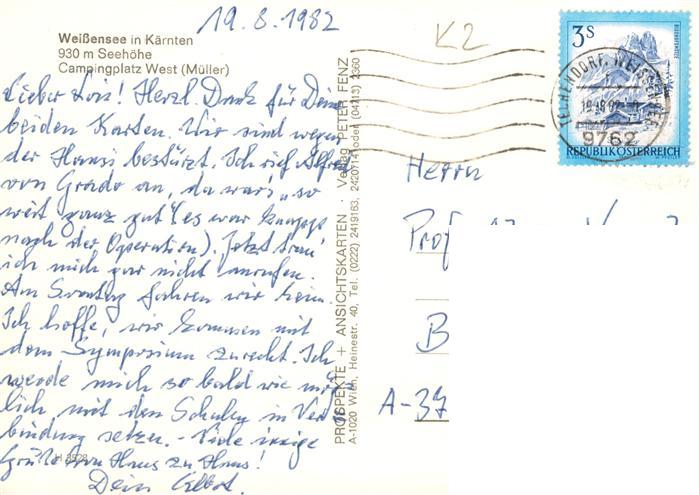 19.8.1982
K2
Weißensee in Kärnten
930 m Seehöhe
Campingplatz West (Müller)
Lieber Kons! Herzl. Dank für Deine
beiden Karten. Wir sind wegen
der Hansi bestürzt. Ich rief Alfred
von Grado an, da war's so
weit ganz gut (es war knapp
nach der Operation). Jetzt trau'
ich mich gar nicht anrufen.
Am Sonntag fahren wir heim.
Ich hoffe, wir kommen mit
dem Symposium zurecht. Ich
werde mich so bald wie mög
lich mit den Schulen in Ver
bindung setzen. - Viele innige
Grüße von Haus zu Haus!
Dein
H 3528
PROSPEKTE + ANSICHTSKARTEN · Verlag PETER FENZ
A-1020 Wien, Heinestr. 40, Tel. (0222) 2419163, 2420714
3 S
REPUBLIK ÖSTERREICH
TECHENDORF, WEISSENSEE
9762
Herrn
Prof
B
A-37